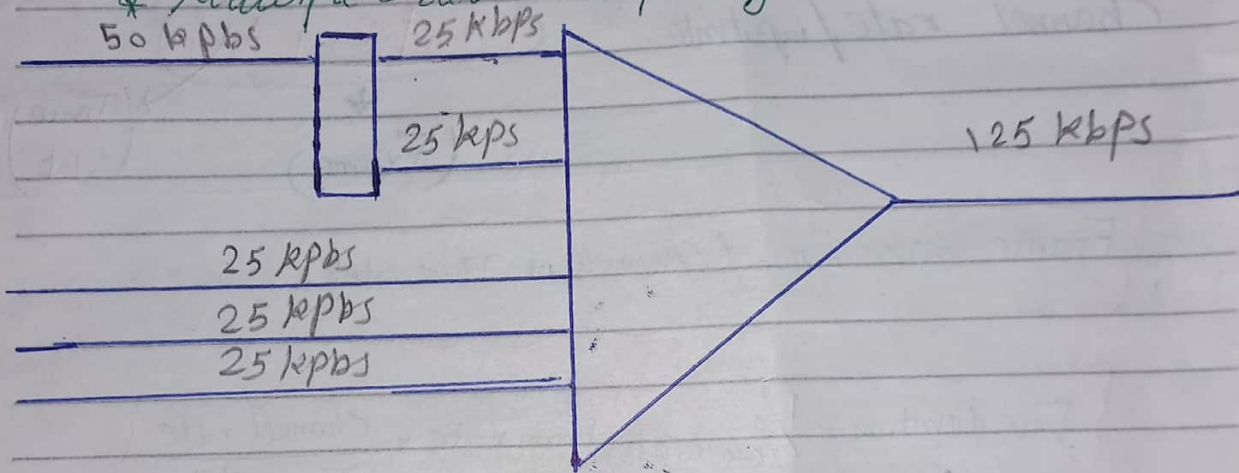 50 kpbs 25 kbps
25 kps
125 kbps
25 kpbs
25 kpbs
25 kpbs